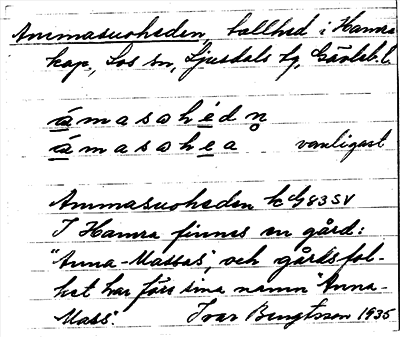 Ammasuoheden, tallhed i Hamra
kap., Los sn, Ljusdals tg, Gävleb. l.
a̱masahé̱dn̥
á̱masahe̱a vanligast
Ammasuoheden kG83SV
I Hamra finnes en gård:
"Anna-Massas", och gårdsfol-
ket har förr sina namn "Anna-
Mass". Ivar Bengtsson 1935